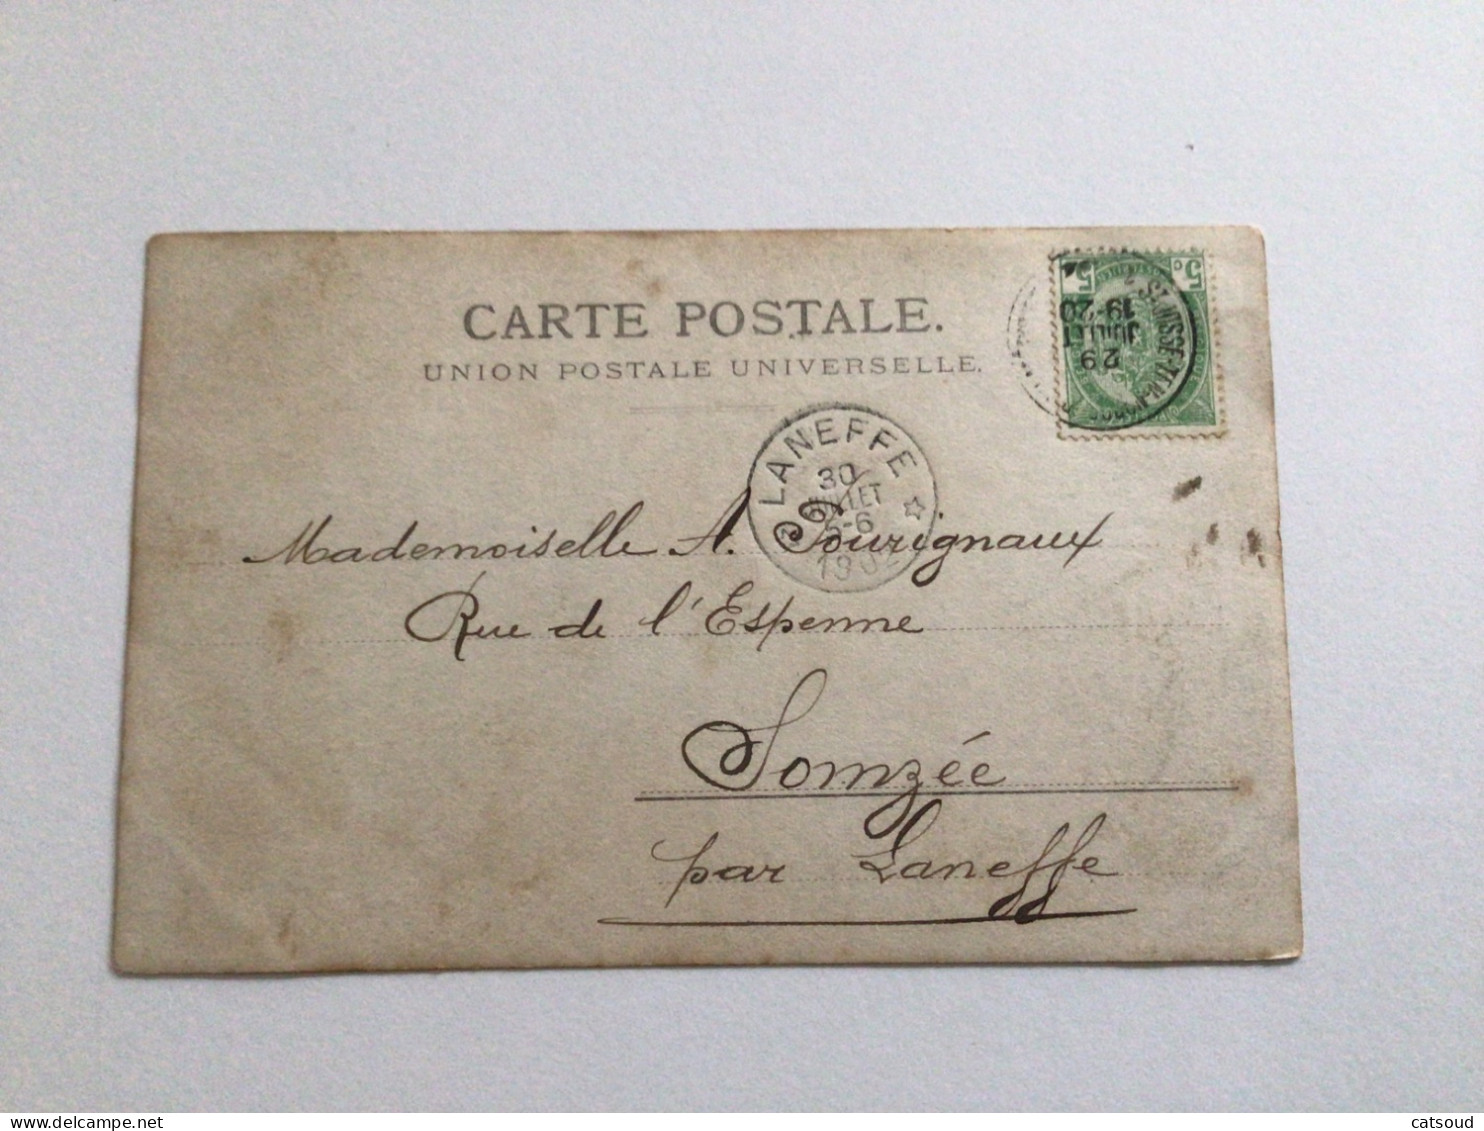 CARTE POSTALE.
UNION POSTALE UNIVERSELLE.
5c 5c
29
JUILLET
19-20
LANEFFE
30
JUILLET
5-6
1902
Mademoiselle A. Sourignaux
Rue de l'Espenne
Somzée
par Laneffe
delcampe.net
catsoud